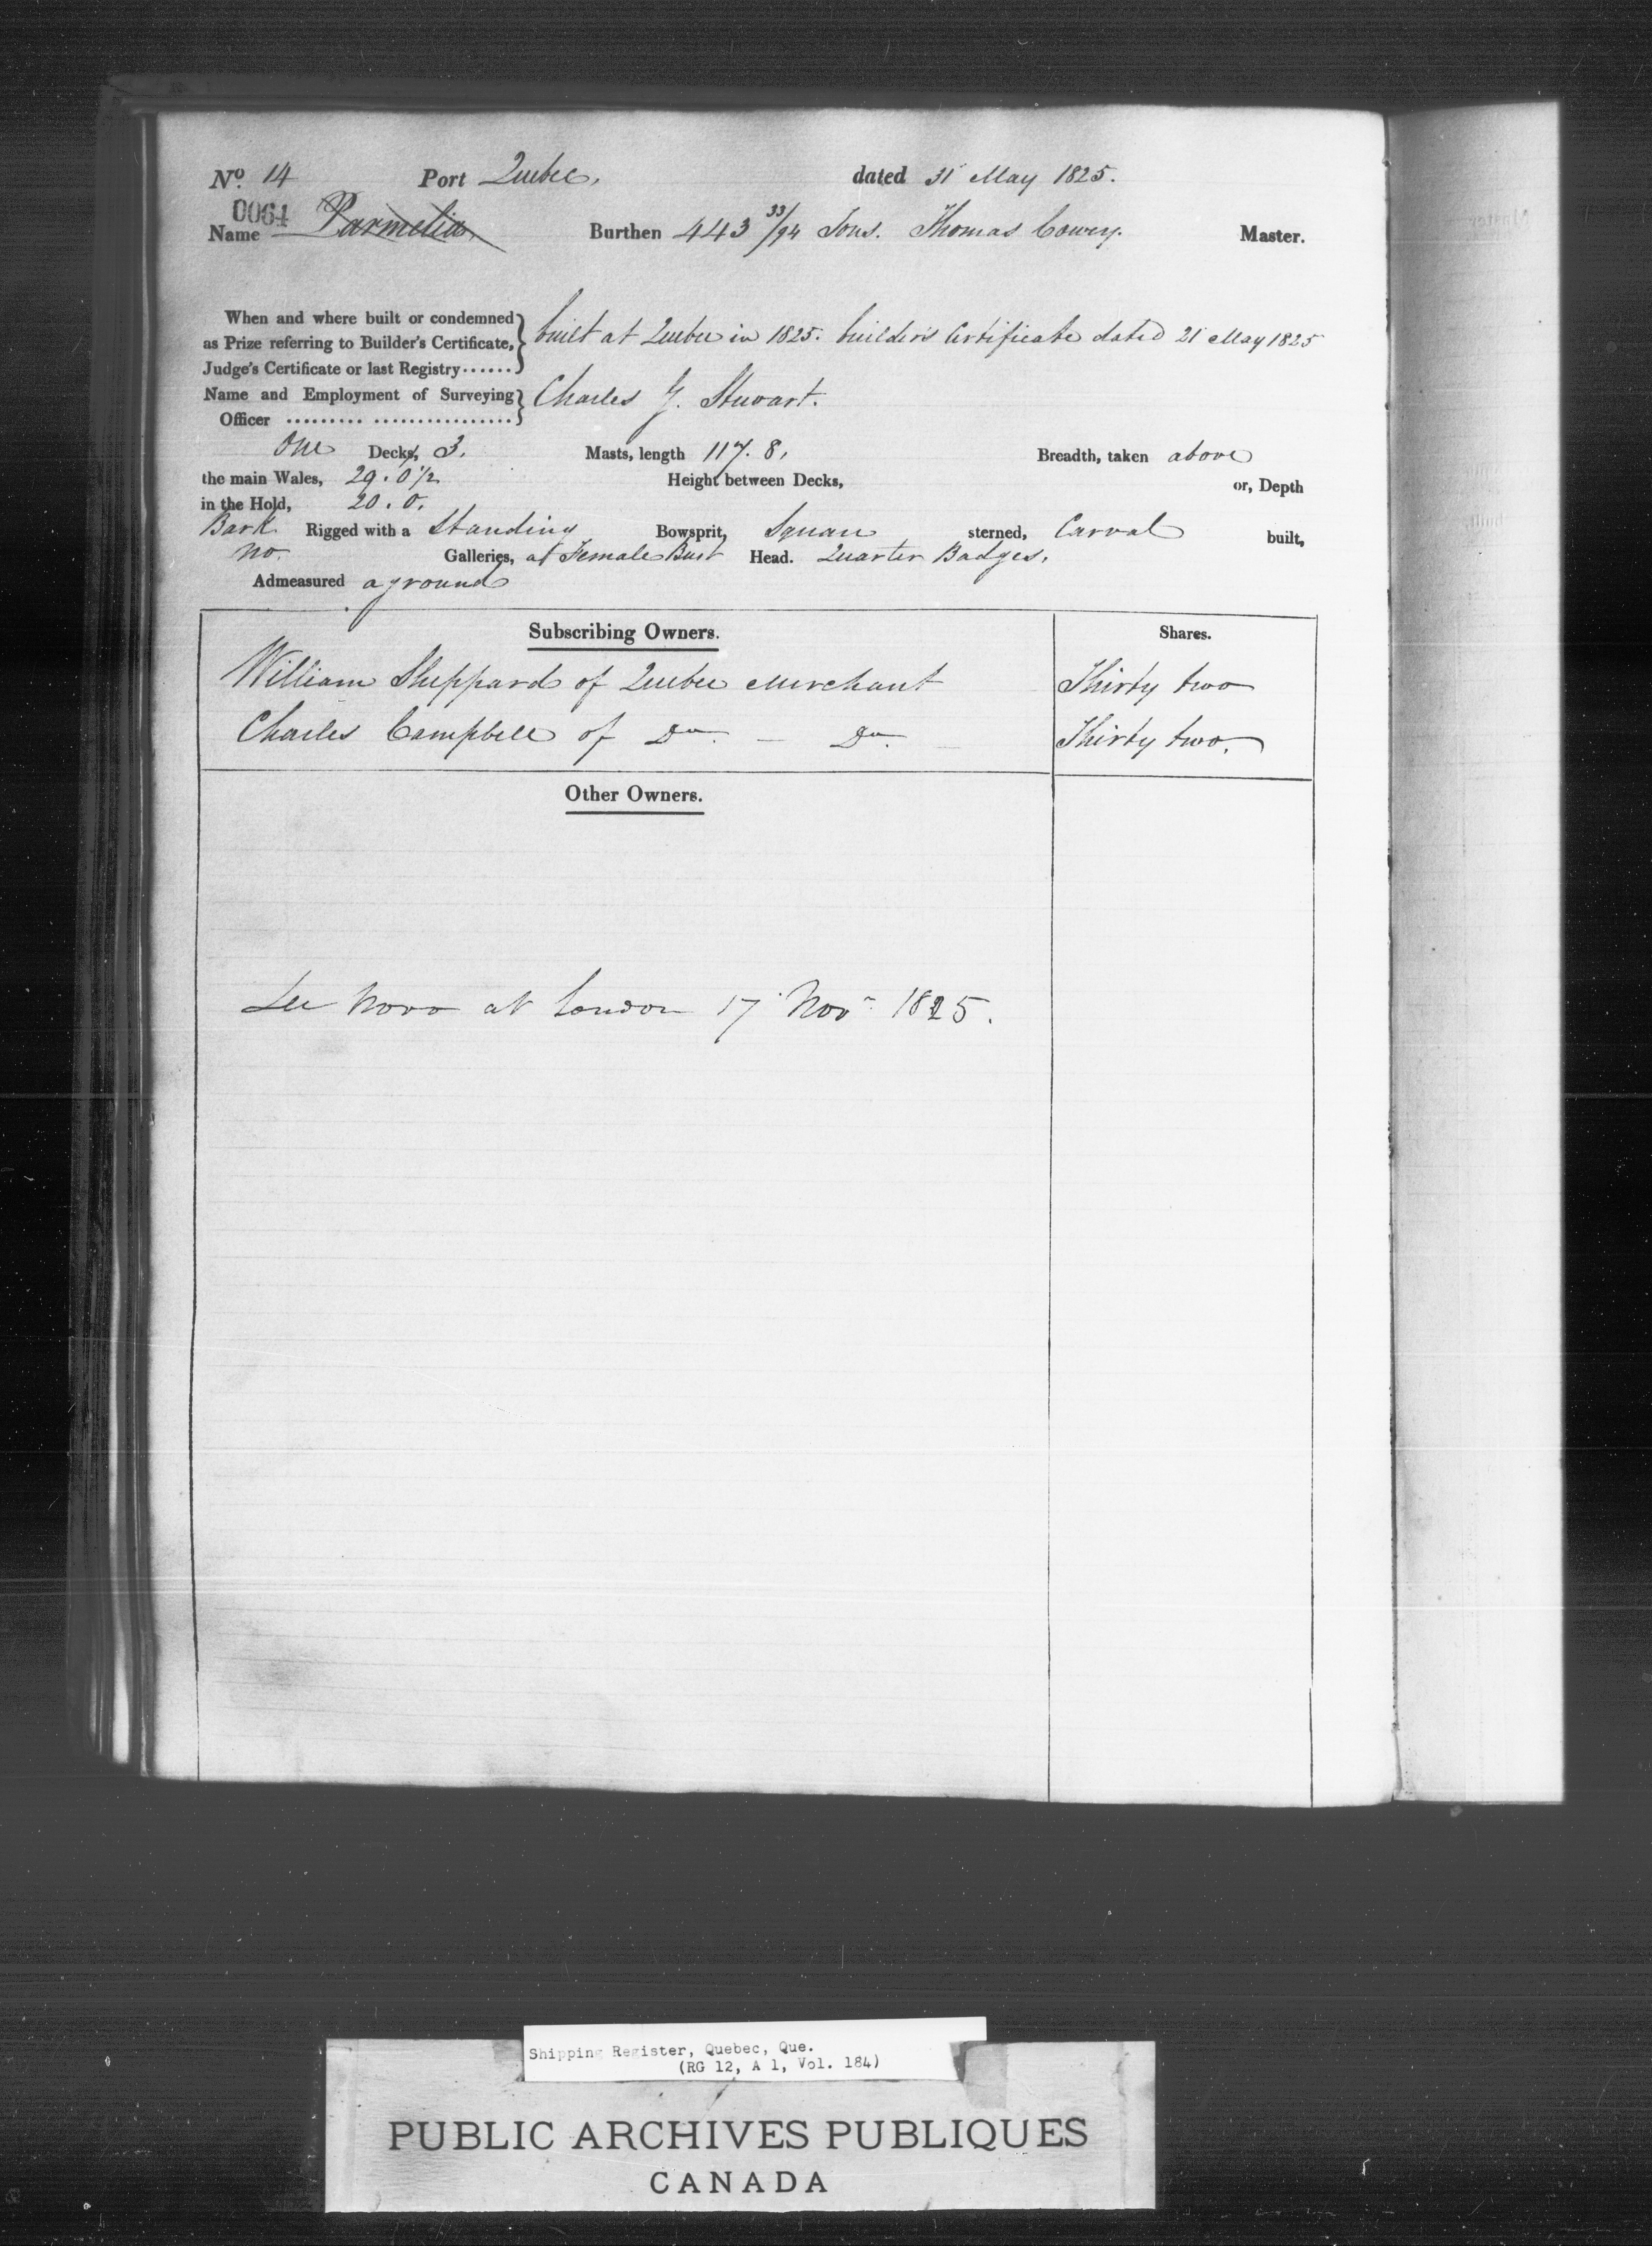 No. 14 Port Quebec, dated 31 May 1825.
0064
Name Parmelia Burthen 443 33/94 Tons. Thomas Cowry. Master.
When and where built or condemned
as Prize referring to Builder's Certificate,
Judge's Certificate or last Registry......
built at Quebec in 1825. builder's Certificate dated 21 May 1825
Name and Employment of Surveying
Officer ......... ................
Charles G. Stewart.
One Decks, 3. Masts, length 117. 8, Breadth, taken above
the main Wales, 29. 0 1/2 Height between Decks, or, Depth
in the Hold, 20. 0.
Bark Rigged with a Standing Bowsprit, Square sterned, Carval built,
no Galleries, a Female Bust Head. Quarter Badges.
Admeasured aground
Subscribing Owners. Shares.
William Sheppard of Quebec Merchant Thirty two
Charles Campbell of Do. — Do. — Thirty two.
Other Owners.
De Novo at London 17 Novr 1825.
Shipping Register, Quebec, Que.
(RG 12, A 1, Vol. 184)
PUBLIC ARCHIVES PUBLIQUES
CANADA